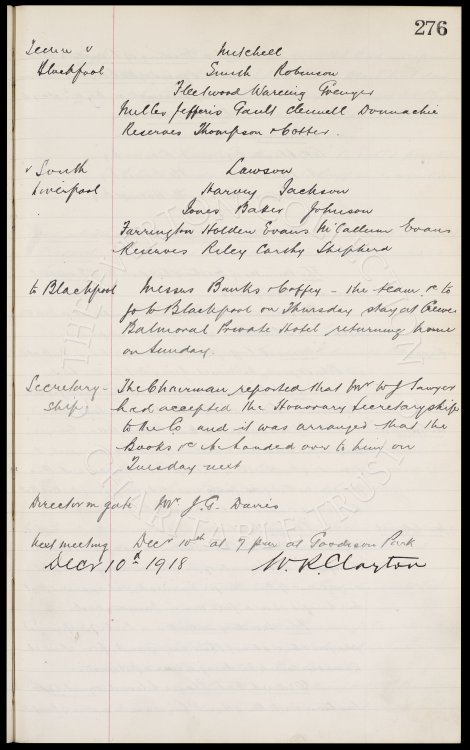 276
Team v Mitchell
Blackpool Smith Robinson
Fleetwood Wareing Grenyer
Miller Jefferis Gault Clennell Donnachie
Reserves Thompson & Cotter.
v South Lawson
Liverpool Harvey Jackson
Jones Baker Johnson
Farrington Holden Evans McCallum Evans
Reserves Riley Carthy Shepherd
to Blackpool Messrs Banks & Coffey – the team &c to
go to Blackpool on Thursday stay at
Balmoral Private Hotel returning home
on Sunday.
Secretary- The Chairman reported that Mr W J Sawyer
ship. had accepted the Honorary Secretaryship
to the Co and it was arranged that the
Books &c be handed over to him on
Tuesday next
Director on gate Mr J.G. Davis
Next meeting Decr 10th at 7 pm at Goodison Park
Decr 10th 1918 W.R. Clayton
THE EVERTON COLLECTION
CHARITABLE TRUST